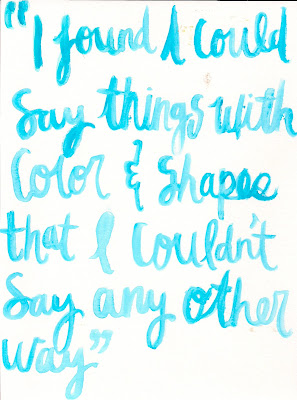 "I found I could
say things with
Color & shapes
that I couldn't
say any other
way"